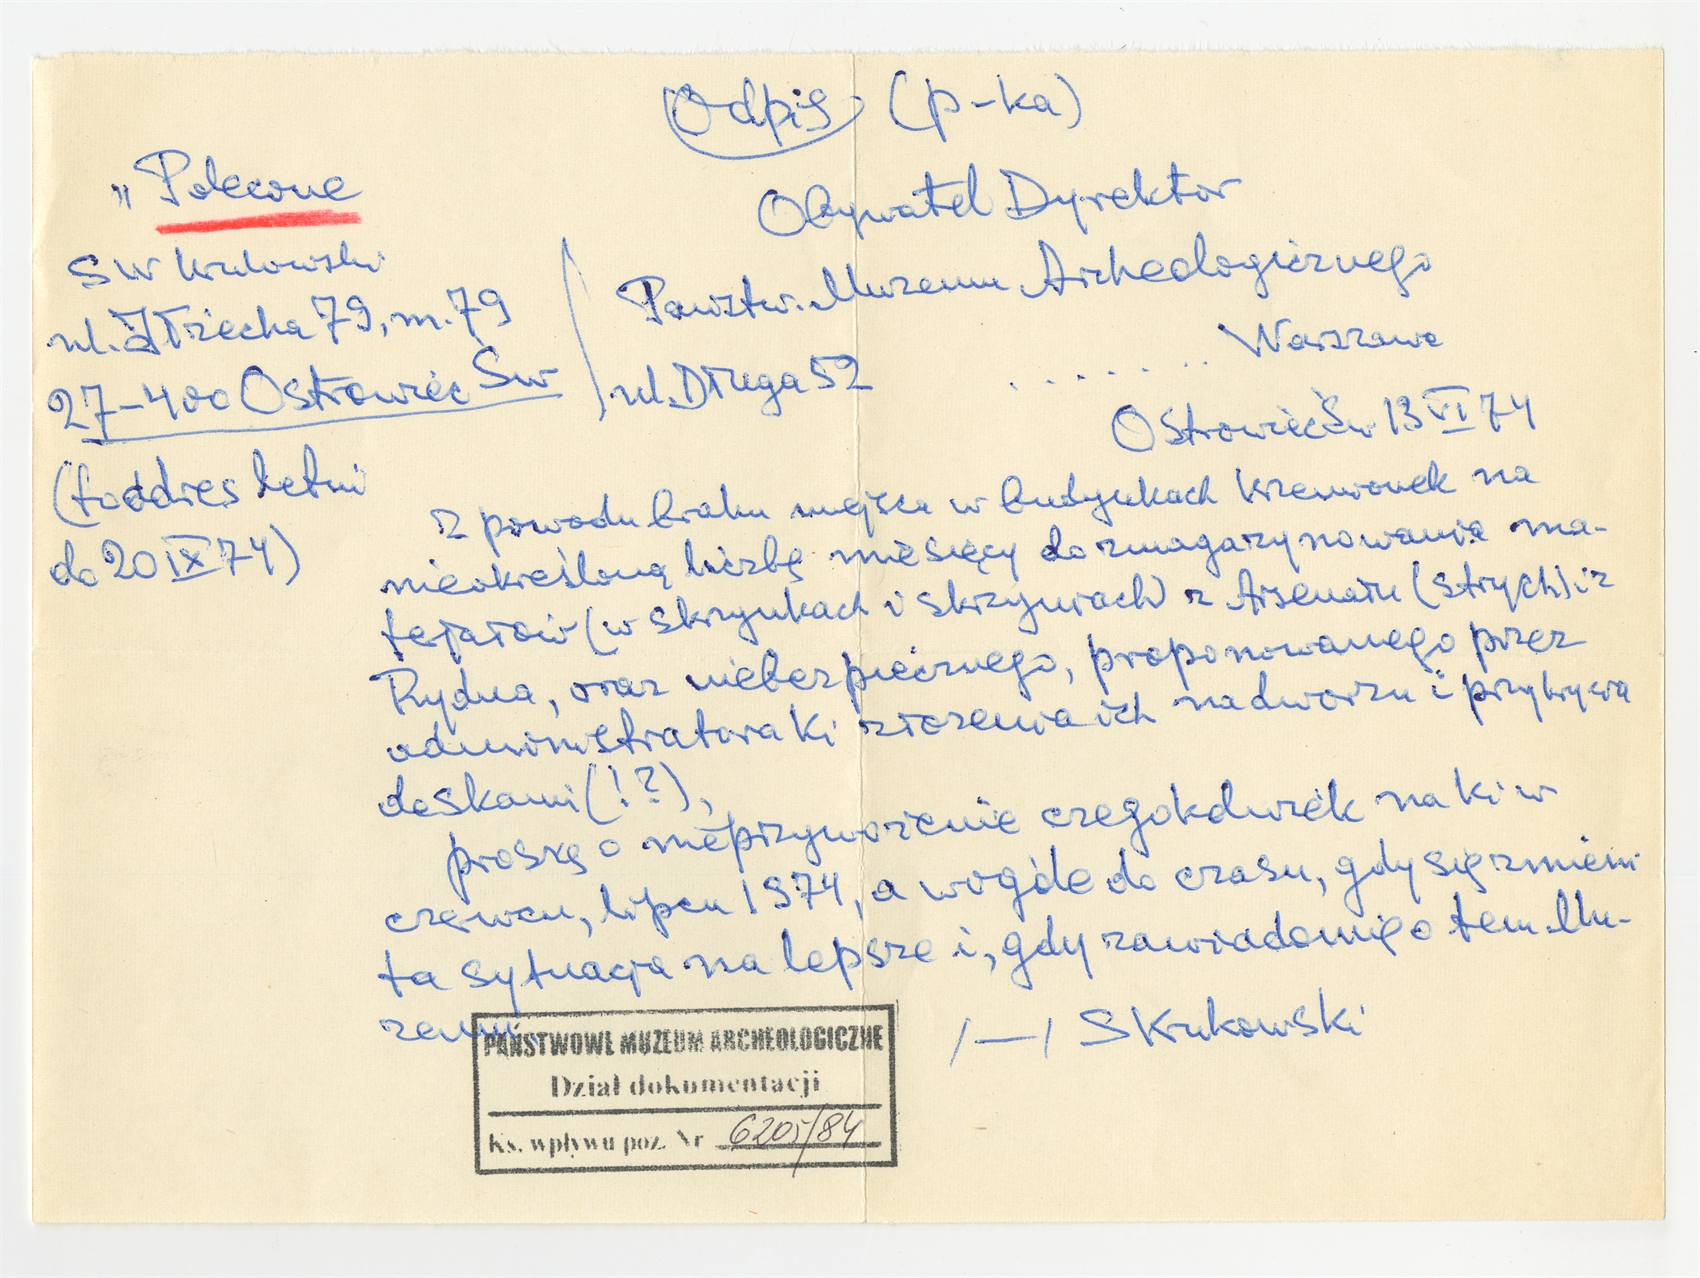 Odpis (p-ka)
"Polecone
SW Krukowski
ul. Iłżecka 79, m. 79
27-400 Ostrowiec Św
(to addres letni
do 20 IX 74)
Obywatel Dyrektor
Państw. Muzeum Archeologicznego
Warszawa
ul. Długa 52
Ostrowiec Św 13 VI 74
Z powodu braku miejsca w budynkach Krzemionek na
nieokreśloną liczbę miesięcy do zmagazynowania ma-
terjałów (w skrzynkach i skrzyniach) z Arsenału (strych) i z
Rydna, oraz niebezpiecznego, proponowanego przez
administratora Ki złożenia ich na dworzu i przykrycia
deskami (!?),
proszę o nieprzywożenie czegokolwiek na Ki w
czerwcu, lipcu 1974, a wogóle do czasu, gdy się zmieni
ta sytuacja na lepsze i, gdy zawiadomię o tem Mu-
zeum.
/—/ SKrukowski
PAŃSTWOWE MUZEUM ARCHEOLOGICZNE
Dział dokumentacji
Ks. wpływu poz. Nr 6205/84